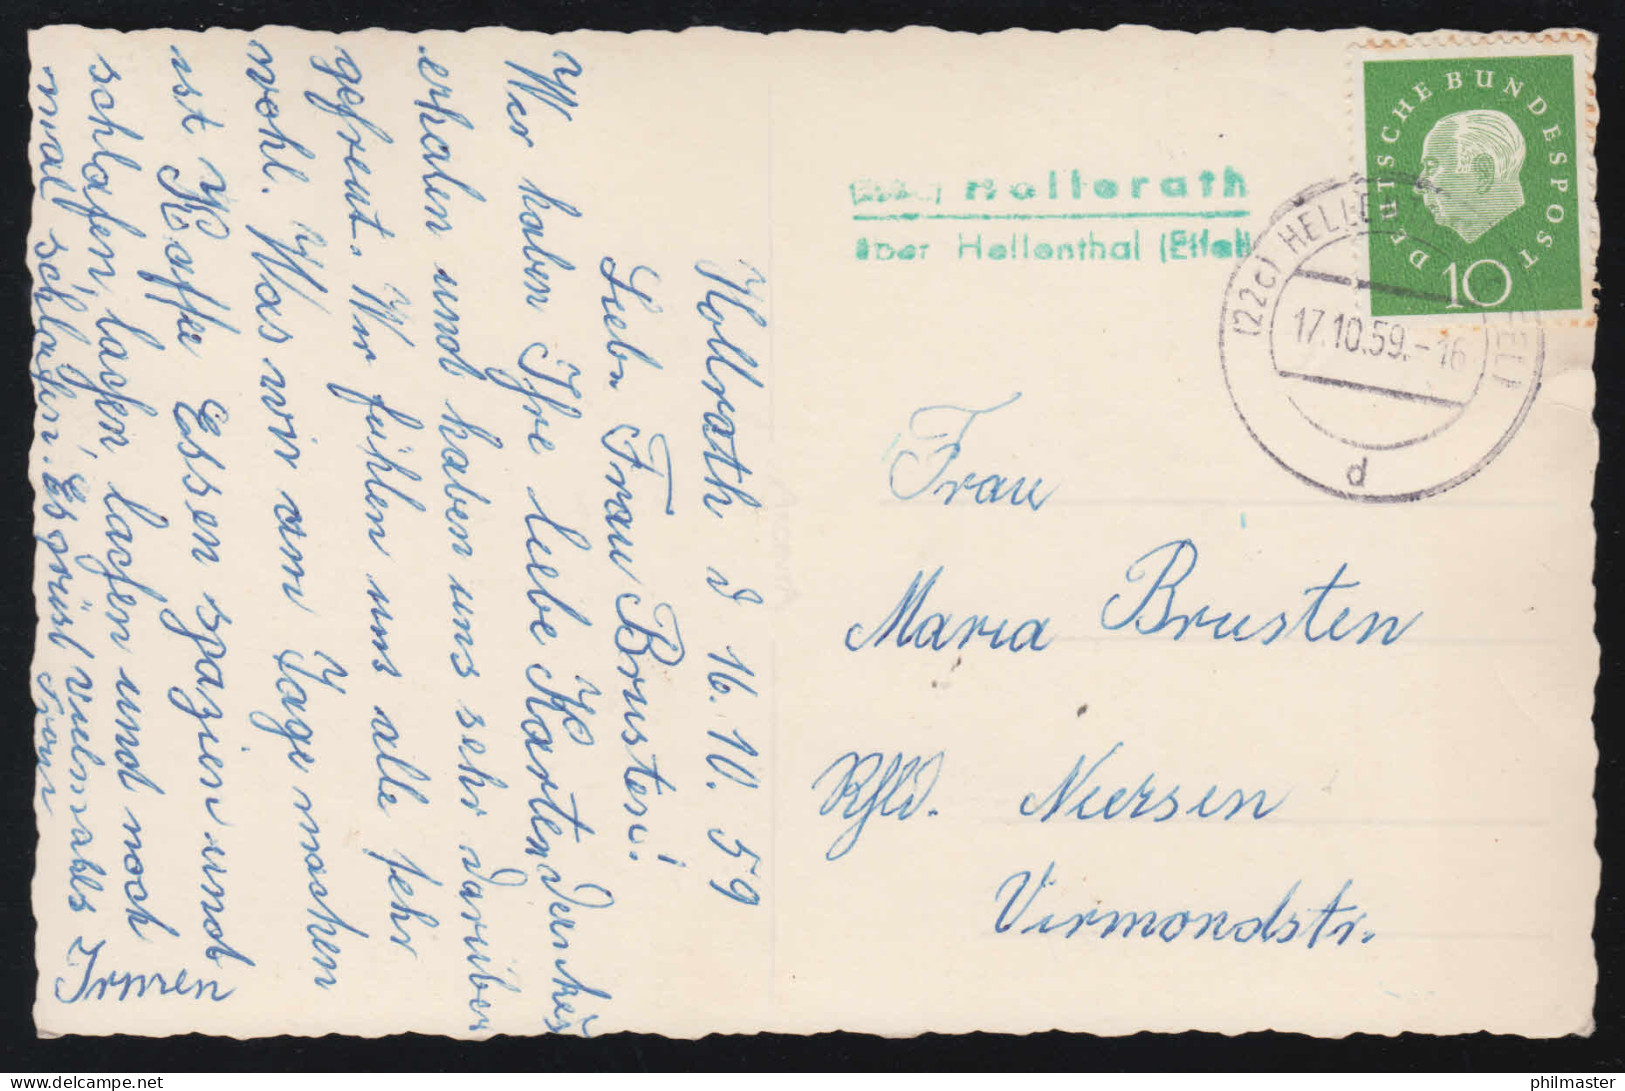 Hollrath d 16. 10. 59
Lieb. Frau Brusten!
Wir haben Ihre liebe Karte
erhalen und haben uns sehr darüber
gefreut. Wir fühlen uns alle sehr
wohl. Was wir am Tage machen
ist Kaffe Essen spazien und
schlafen, lachen lachen und noch
mal schlafen. Es grüst vielmals
Frau Irmen
Hollerath
über Hellenthal (Eifel)
DEUTSCHE BUNDESPOST
10
(22c) HELLE
17.10.59.-16
d
Frau
Maria Brusten
Rhld. Niersen
Virmondstr.
philmaster